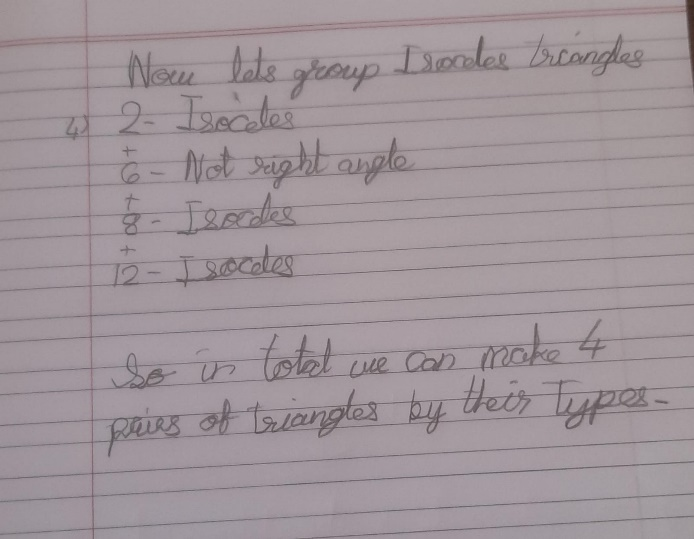 Now lets group Isoceles triangles
4) 2 - Isoceles
+
6 - Not right angle
+
8 - Isoceles
+
12 - Isoceles
So in total we can make 4
pairs of triangles by their Types -